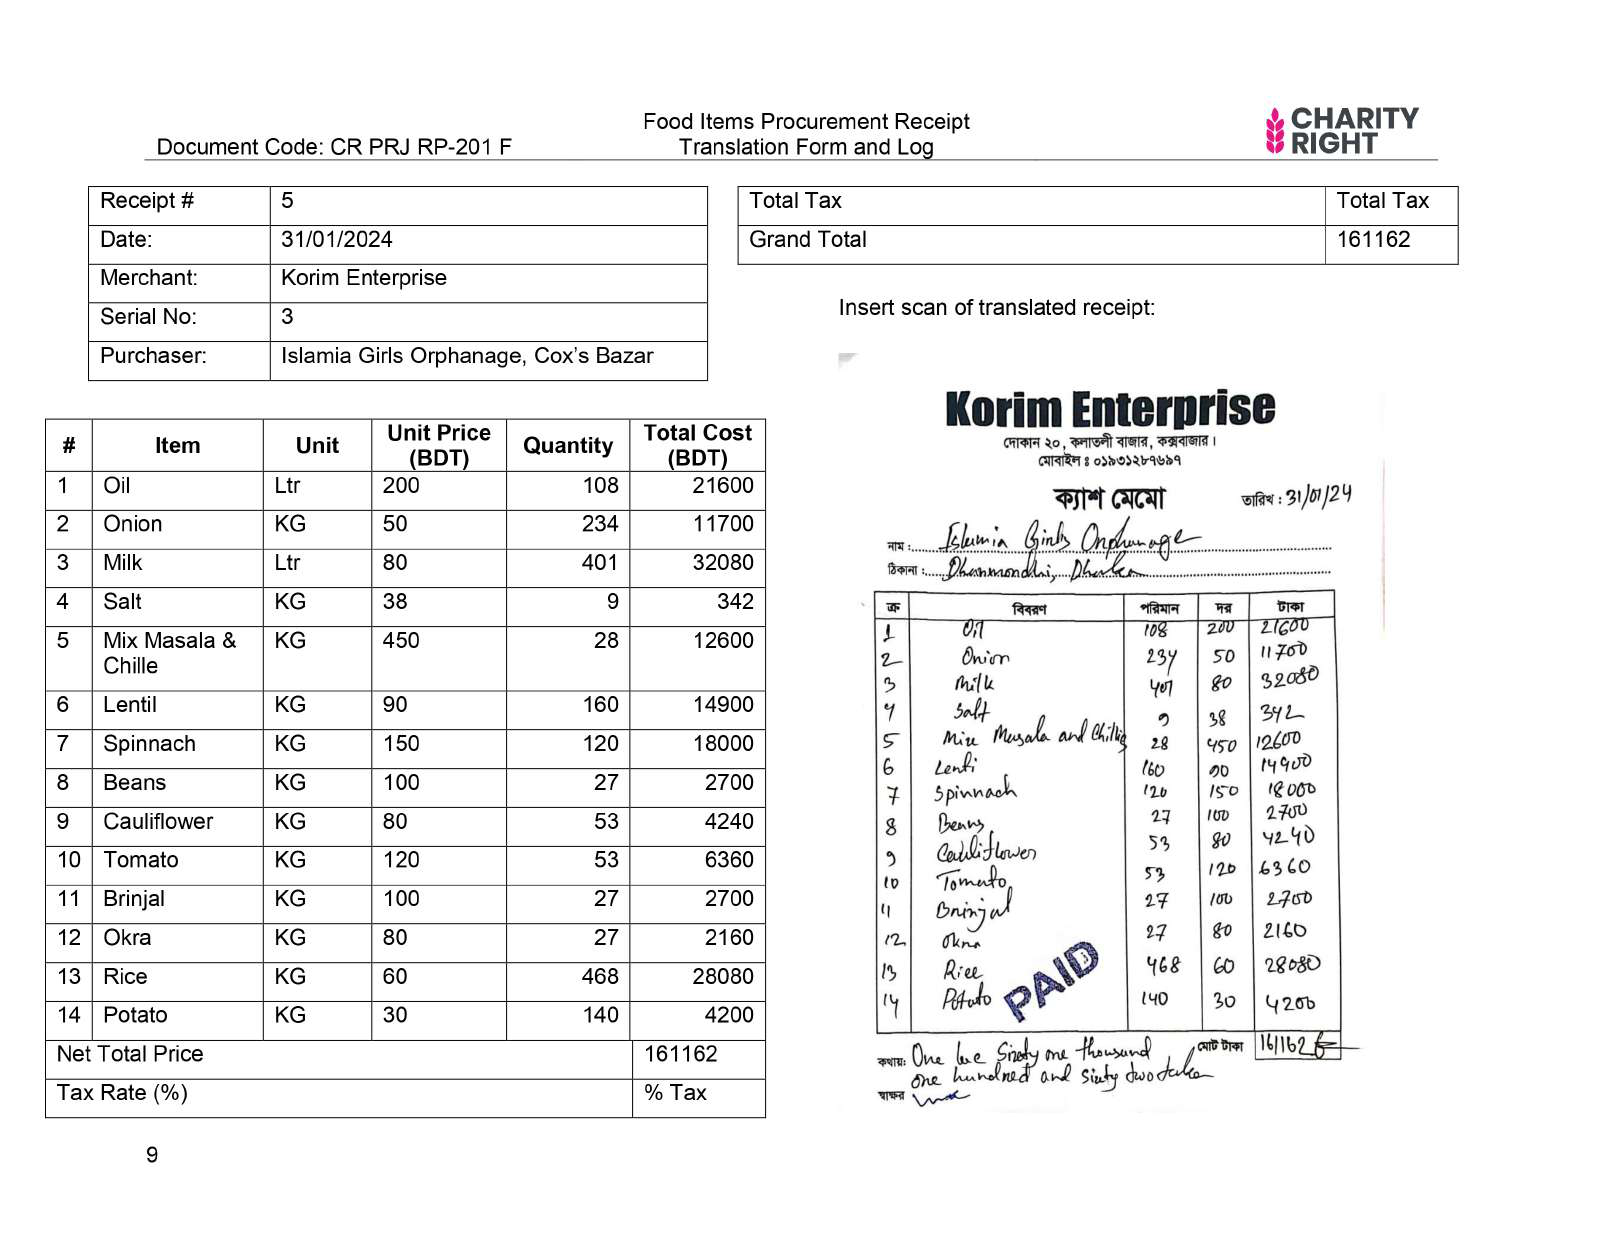 Document Code: CR PRJ RP-201 F
Food Items Procurement Receipt
Translation Form and Log
CHARITY
RIGHT
Receipt # 5
Date: 31/01/2024
Merchant: Korim Enterprise
Serial No: 3
Purchaser: Islamia Girls Orphanage, Cox’s Bazar
# Item Unit Unit Price (BDT) Quantity Total Cost (BDT)
1 Oil Ltr 200 108 21600
2 Onion KG 50 234 11700
3 Milk Ltr 80 401 32080
4 Salt KG 38 9 342
5 Mix Masala & Chille KG 450 28 12600
6 Lentil KG 90 160 14900
7 Spinnach KG 150 120 18000
8 Beans KG 100 27 2700
9 Cauliflower KG 80 53 4240
10 Tomato KG 120 53 6360
11 Brinjal KG 100 27 2700
12 Okra KG 80 27 2160
13 Rice KG 60 468 28080
14 Potato KG 30 140 4200
Net Total Price 161162
Tax Rate (%) % Tax
9
Total Tax Total Tax
Grand Total 161162
Insert scan of translated receipt:
Korim Enterprise
দোকান ২০, কলাতলী বাজার, কক্সবাজার।
মোবাইল ঃ ০১৯৩১২৮৭৬৯৭
ক্যাশ মেমো
তারিখ : 31/01/24
নাম : Islamia Girls Orphanage
ঠিকানা : Dhanmondhi, Dhaka
ক্র বিবরণ পরিমান দর টাকা
1 Oil 108 200 21600
2 Onion 234 50 11700
3 Milk 401 80 32080
4 Salt 9 38 342
5 Mix Masala and Chillie 28 450 12600
6 Lenti 160 90 14900
7 Spinnach 120 150 18000
8 Beans 27 100 2700
9 Cauliflower 53 80 4240
10 Tomato 53 120 6360
11 Brinjal 27 100 2700
12 Okra 27 80 2160
13 Rice 468 60 28080
14 Potato 140 30 4200
PAID
মোট টাকা 161162
কথায়: One lac Sixty one thousand
one hundred and sixty two taka
স্বাক্ষর